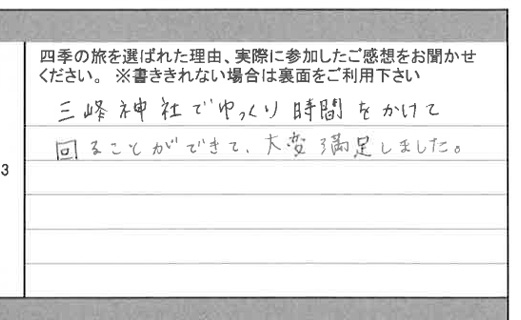 四季の旅を選ばれた理由、実際に参加したご感想をお聞かせ
ください。 ※書ききれない場合は裏面をご利用下さい
三峰神社でゆっくり時間をかけて
回ることができて、大変満足しました。
3